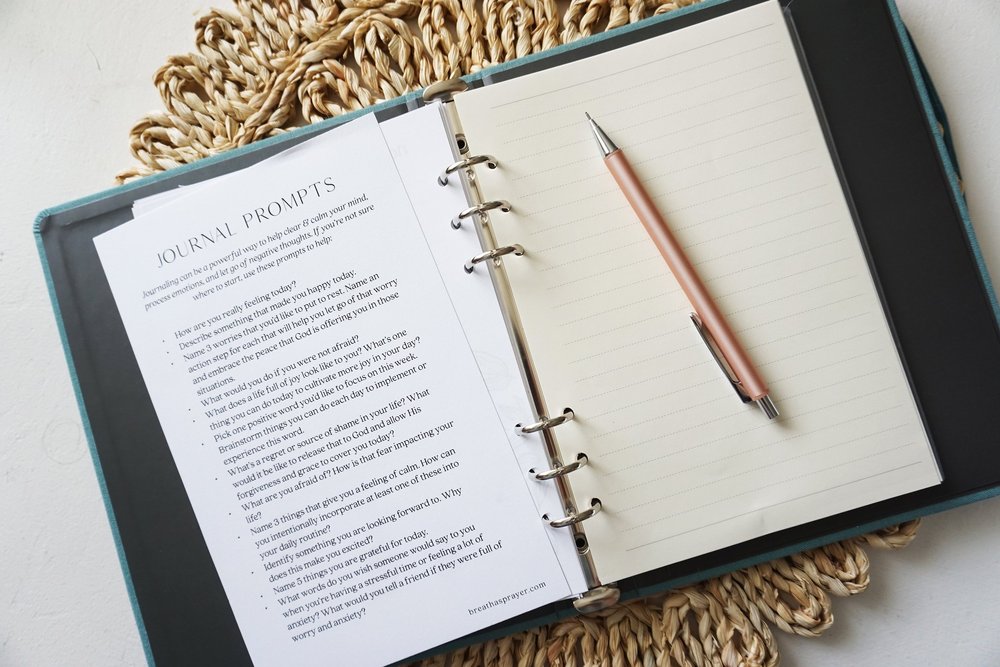 JOURNAL PROMPTS
Journaling can be a powerful way to help clear & calm your mind,
process emotions, and let go of negative thoughts. If you're not sure
where to start, use these prompts to help:
• How are you really feeling today?
• Describe something that made you happy today.
• Name 3 worries that you'd like to put to rest. Name an
action step for each that will help you let go of that worry
and embrace the peace that God is offering you in those
situations.
• What would you do if you were not afraid?
• What does a life full of joy look like to you? What's one
thing you can do today to cultivate more joy in your day?
• Pick one positive word you'd like to focus on this week.
Brainstorm things you can do each day to implement or
experience this word.
• What's a regret or source of shame in your life? What
would it be like to release that to God and allow His
forgiveness and grace to cover you today?
• What are you afraid of? How is that fear impacting your
life?
• Name 3 things that give you a feeling of calm. How can
you intentionally incorporate at least one of these into
your daily routine?
• Identify something you are looking forward to. Why
does this make you excited?
• Name 5 things you are grateful for today.
• What words do you wish someone would say to you
when you're having a stressful time or feeling a lot of
anxiety? What would you tell a friend if they were full of
worry and anxiety?
breathasprayer.com